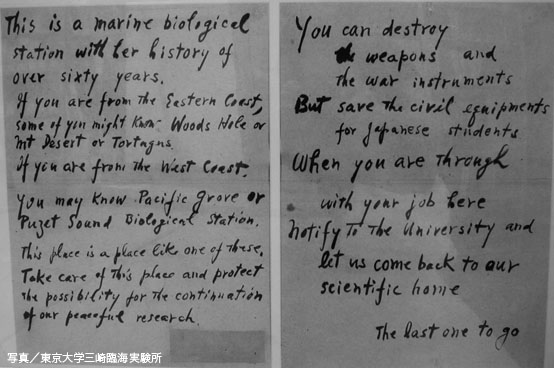 This is a marine biological
station with her history of
over sixty years.
If you are from the Eastern Coast,
some of you might know Woods Hole or
Mt Desert or Tortugas.
If you are from the West Coast,
you may know Pacific Grove or
Puget Sound Biological Station.
This place is a place like one of these.
Take care of this place and protect
the possibility for the continuation
of our peaceful research.
You can destroy
the weapons and
the war instruments
But save the civil equipments
for Japanese students
When you are through
with your job here
Notify to the University and
let us come back to our
scientific home
The last one to go
写真／東京大学三崎臨海実験所